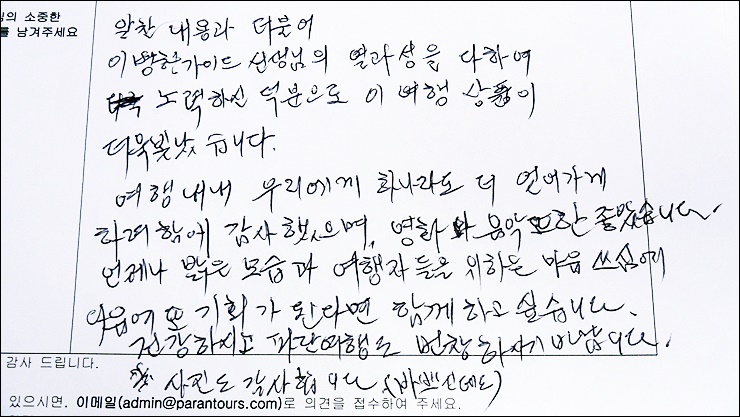 의 소중한
를 남겨주세요
알찬 내용과 더불어
이병헌가이드 선생님의 열과 성을 다하여
노력하신 덕분으로 이 여행 상품이
더욱빛났습니다.
여행내내 우리에게 하나라도 더 얻어가게
하려 함에 감사했으며, 영화와 음악 또한 좋았습니다.
언제나 밝은 모습과 여행자들을 위하는 마음 쓰심에
다음에 또 기회가 된다면 함께하고 싶습니다.
건강하시고 파란여행도 번창하시기 바랍니다.
사진도 감사합니다
감사 드립니다.
있으시면, 이메일(admin@parantours.com)로 의견을 접수하여 주세요.